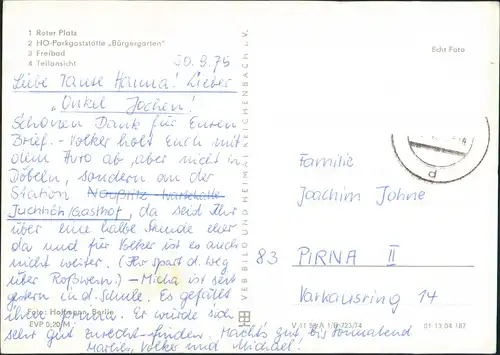 1 Roter Platz
2 HO-Parkgaststätte „Bürgergarten"
3 Freibad
4 Teilansicht
Echt Foto
30.9.75
Liebe Tante Hanna! Lieber
„Onkel Jochen!
Schönen Dank für Euren
Brief. - Volker holt Euch mit
dem Auto ab, aber nicht in
Döbeln, sondern an der
Station
Juchhöh/Gasthof, da seid Ihr
über eine halbe Stunde eher
da und für Volker ist es auch
nicht weiter. (Ihr spart d. Weg
über Roßwein.) - Micha ist seit
gestern in d. Schule. Es gefällt
ihm prima. Er würde sich
sehr gut zurecht finden. Macht's gut bis Sonnabend
Volker und Michael
Foto: Hoffmann, Berlin
EVP 0,20 M
VEB BILD UND HEIMAT REICHENBACH i. V.
Familie
Joachim Johne
83 PIRNA II
Varkausring 14
01 13 04 187